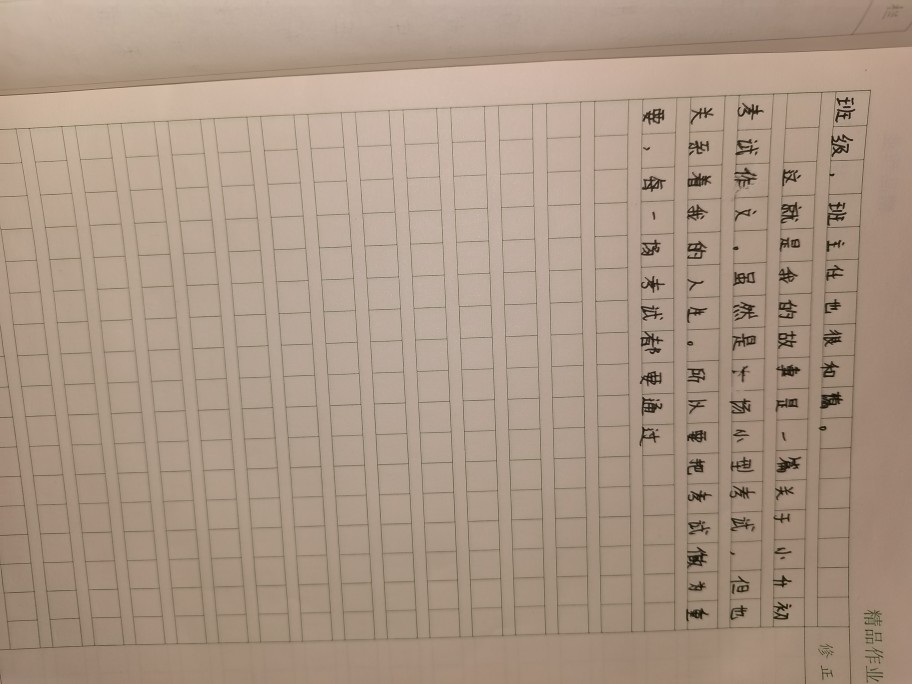 精品作业
修正
班级，班主任也很和蔼。
这就是我的故事是一篇关于小升初
考试作文。虽然是一场小型考试，但也
关系着我的人生。所以要把考试做为重
要，每一场考试都要通过